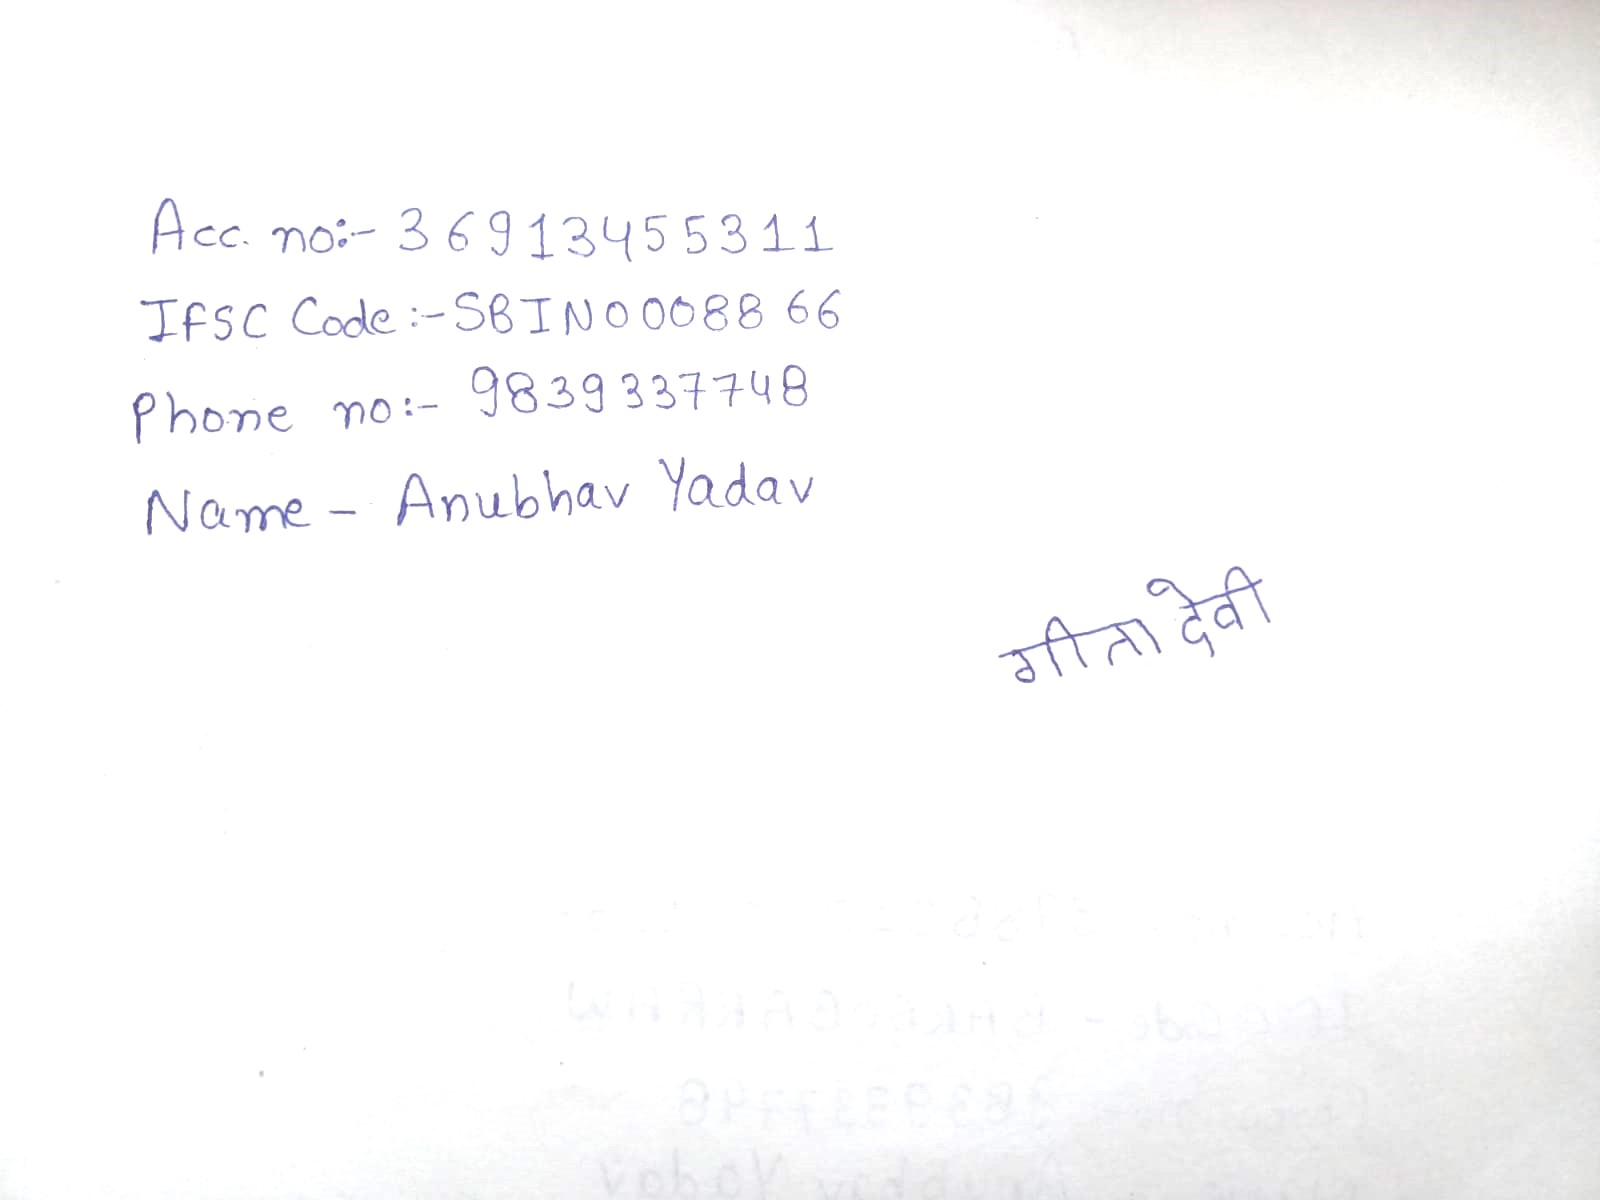 Acc. no:- 36913455311
IFSC Code:- SBIN0008866
Phone no:- 9839337748
Name - Anubhav Yadav
गीता देवी